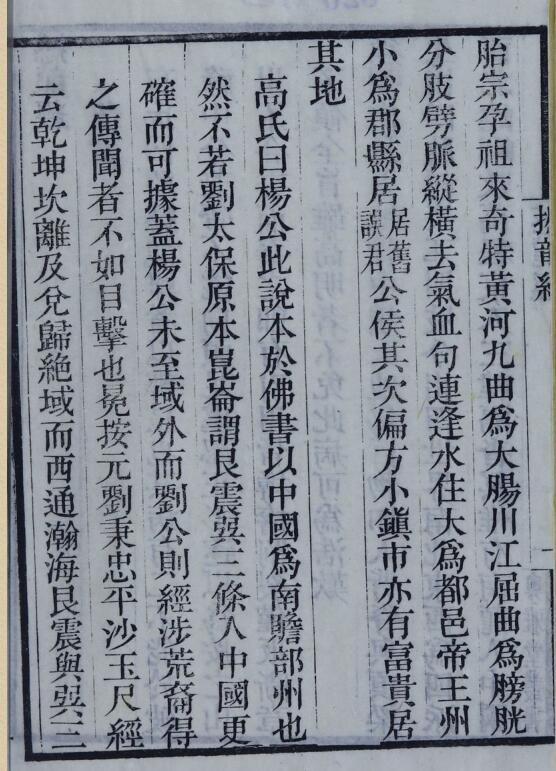 胎宗孕祖來奇特黃河九曲爲大腸川江屈曲爲膀胱
分肢劈脈縱橫去氣血句連逢水住大爲都邑帝王州
小爲郡縣居居舊誤君公侯其次偏方小鎭市亦有富貴居
其地
高氏曰楊公此說本於佛書以中國爲南贍部州也
然不若劉太保原本崑崙謂艮震巽三條入中國更
確而可據蓋楊公未至域外而劉公則經涉荒裔得
之傳聞者不如目擊也晃按元劉秉忠平沙玉尺經
云乾坤坎離及兌歸絶域而西通瀚海艮震與巽三